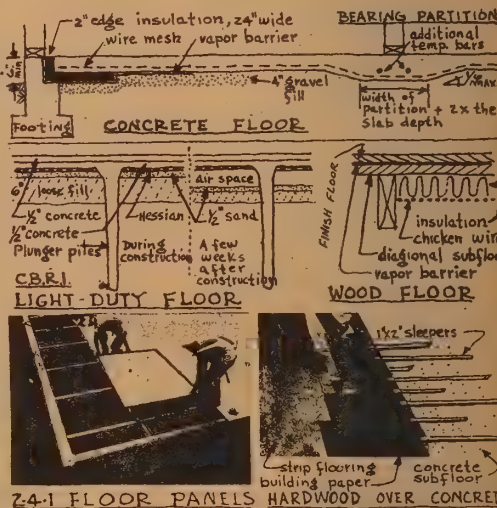 2" edge insulation, 24" wide
wire mesh
vapor barrier
BEARING PARTITION
additional
temp. bars
6"
min
4" gravel
fill
MAX.
width of
partition + 2x the
slab depth
FOOTING
CONCRETE FLOOR
6"
loose fill
air space
½" concrete
Hessian
½" sand
½" concrete
Plunger piles
During
construction
A few
weeks
after
construction
C.B.R.I.
LIGHT-DUTY FLOOR
FINISH FLOOR
insulation
chicken wire
diagional subfloor
vapor barrier
WOOD FLOOR
1"x2" sleepers
strip flooring
building paper
concrete
subfloor
2-4-1 FLOOR PANELS
HARDWOOD OVER CONCRETE